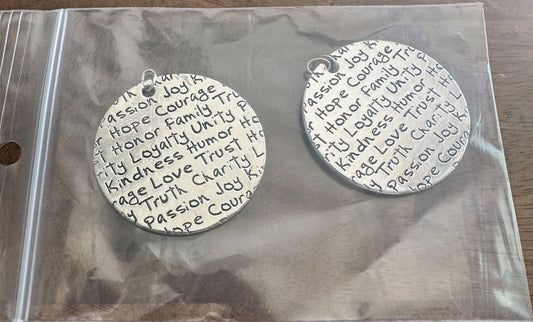 Passion Joy Ki
Hope Courage
Honor Family Tr
ty Loyalty Unity
Kindness Humor H
rage Love Trust
y Truth Charity L
Passion Joy K
ope Coura
assion Joy Ki
Hope Courage
Honor Family Tr
ty Loyalty Unity
Kindness Humor Ho
rage Love Trust
y Truth Charity
Passion Joy K
pe Cou